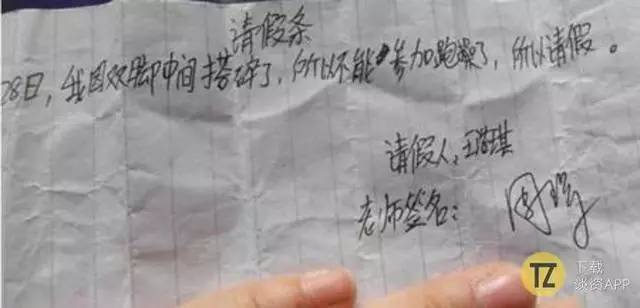 请假条
28日，我因双脚中间搭碎了，所以不能参加跑操了，所以请假。
请假人：王
老师签名：
TZ 下载
谈资APP